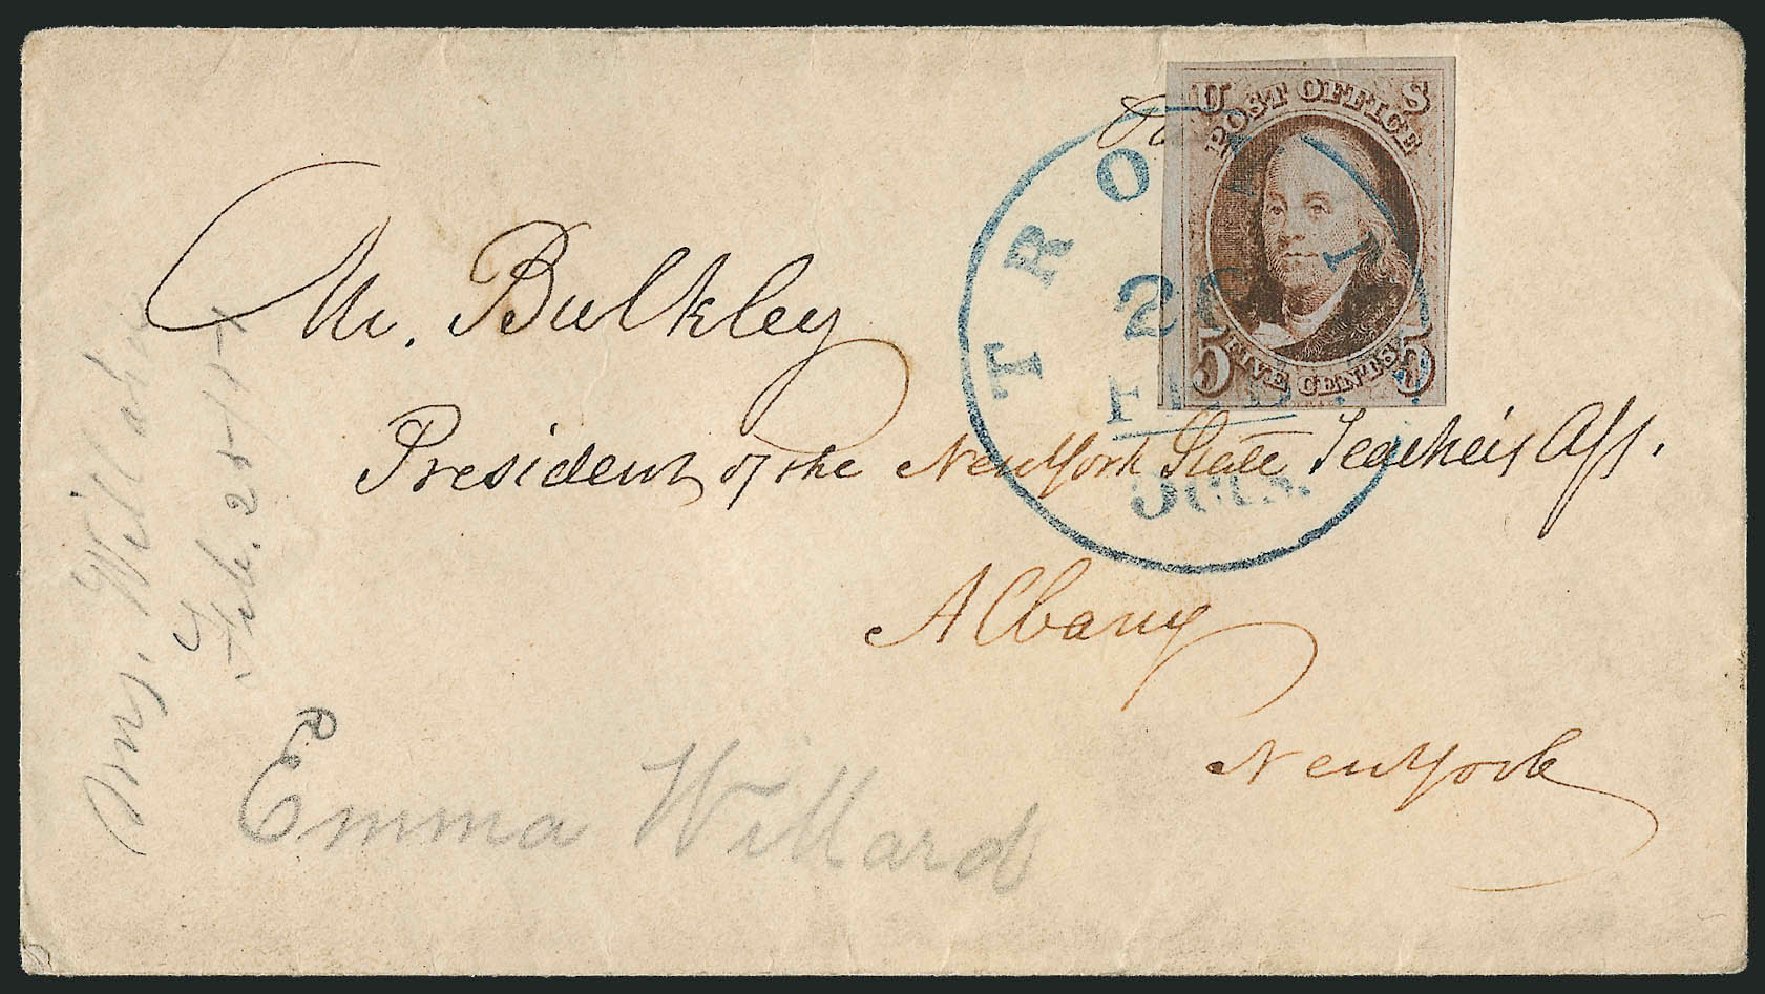 U S
POST OFFICE
5 FIVE CENTS 5
TROY
FEB
5 Cts.
Mr. Bulkley
President of the New York State Teachers Ass.
Albany
New York
Emma Willard
Feb.